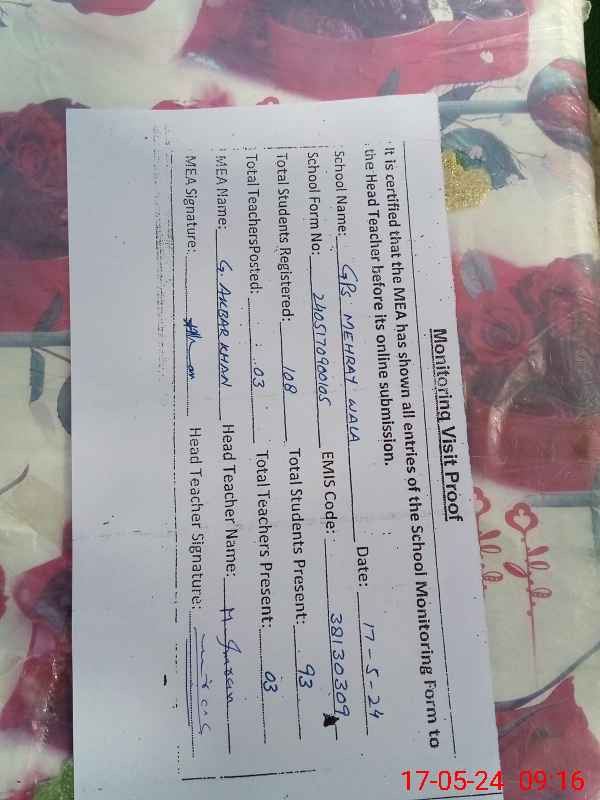 Monitoring Visit Proof
It is certified that the MEA has shown all entries of the School Monitoring Form to
the Head Teacher before its online submission.
School Name: GPS MEHRAY WALA Date: 17-5-24
School Form No: 2405170900105 EMIS Code: 38130309
Total Students Registered: 108 Total Students Present: 93
Total TeachersPosted: 03 Total Teachers Present: 03
MEA Name: G. AKBAR KHAN Head Teacher Name: M
MEA Signature: Head Teacher Signature:
17-05-24 09:16